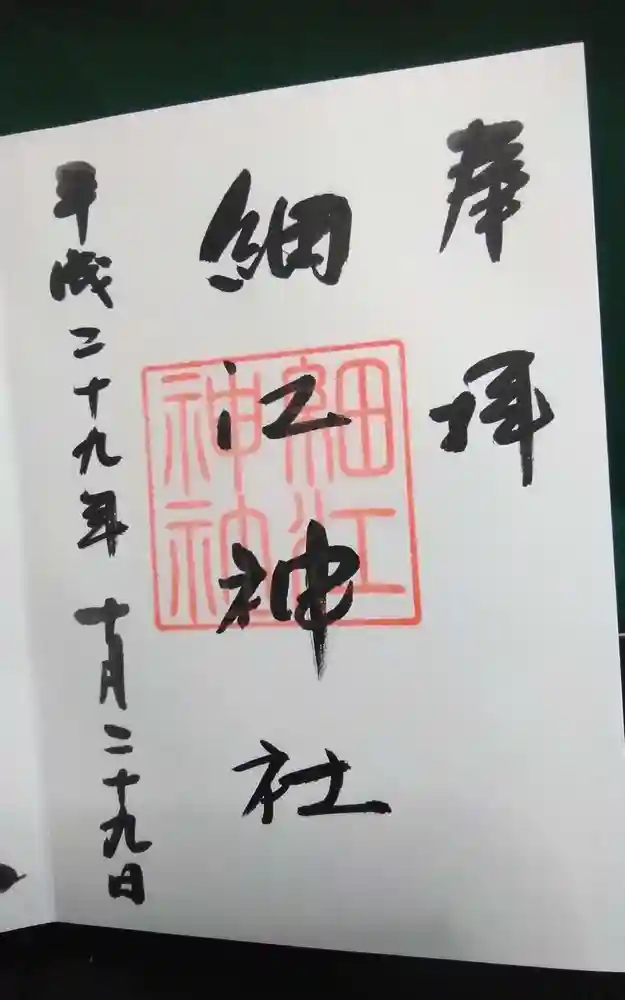 奉拝
細江神社
細江神社
平成二十九年十月二十九日